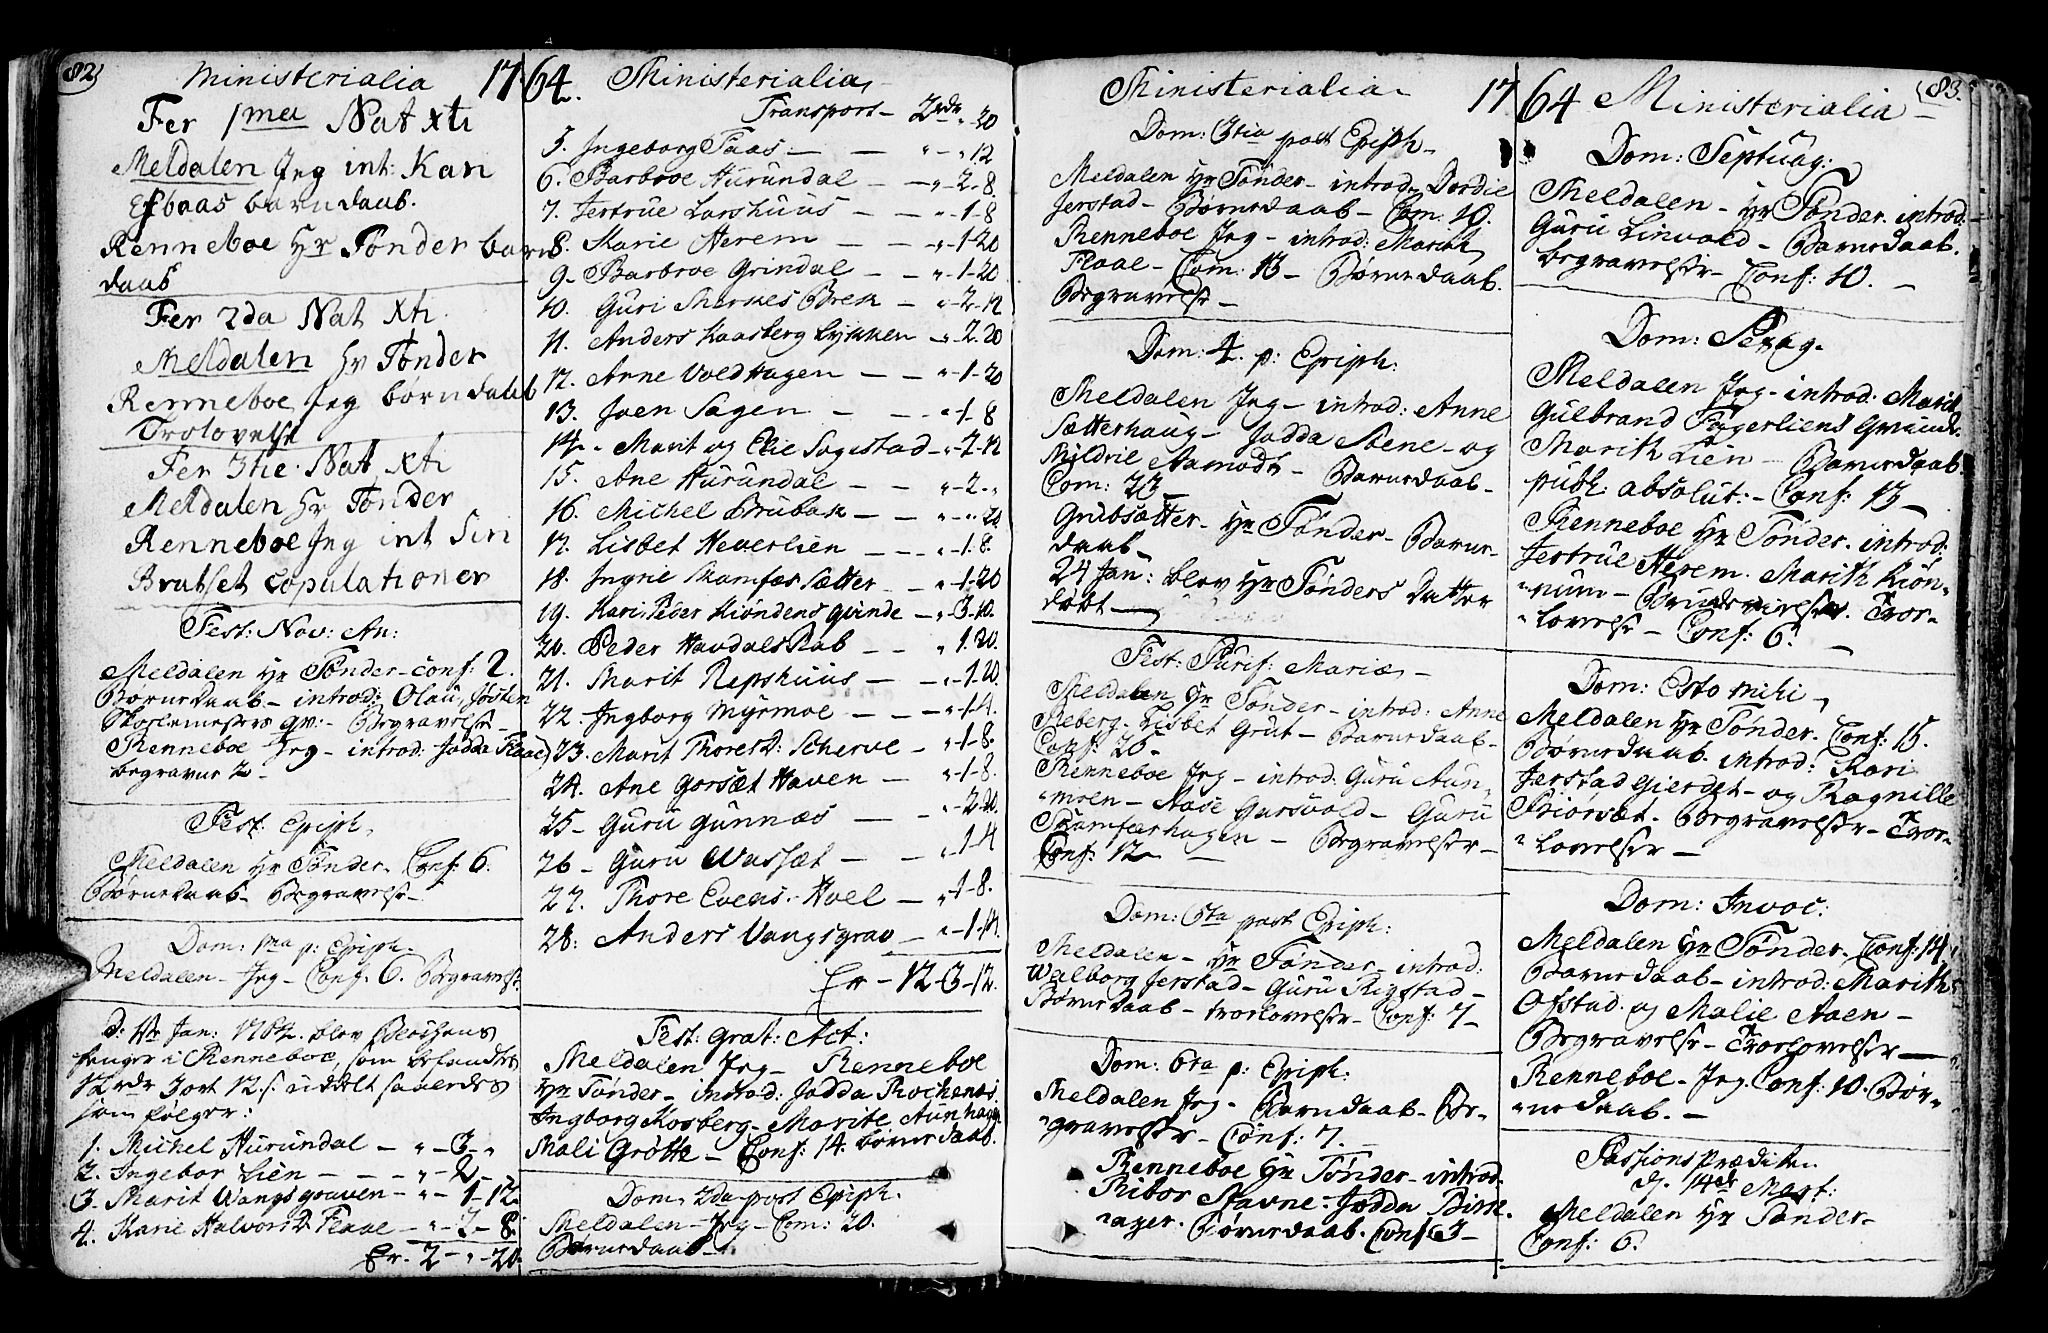 82)
Ministerialia 17
Fer 1ma Nat Xti
Meldalen Jeg int: Kari
barndaab.
Renneboe Hr Tønder barn
daab
Fer 2da Nat Xti.
Meldalen Hr Tønder
Renneboe Jeg børn daab
Trolovelse
Fer 3tie. Nat Xti
Meldalen Hr Tønder
Renneboe Jeg int Siri
Brutset copulationer
Fest: Nov: An:
Meldalen Hr Tønder - Conf: 2.
Børnedaab - introd: Olau Josten
gv: - Begravelse -
Renneboe Jeg - introd: Jodda Flaae
begravne 2 -
Fest: Epiph.
Meldalen Hr Tønder - Conf: 6.
Børnedaab - Begravelse -
Dom: 1ma p: Epiph.
Meldalen - Jeg - Conf: 6. Begravelse.
d: Jan: 1764. blev
penger i Renneboe, som befandtes
12 rdr 3 ort 12 s: uddelt saaledes
som følger:
1. Michel Hurundal - " - 3 - "
2. Ingebor Lien - - - " - 2 -
3. Marit Wangsgraven - " - 1 - 12.
4. Karie Halvors D. Flaae - " - 3 - 8.
Er. 2 - " - 20.
64. Ministerialia
Transport - 2 rdr " 20
5. Ingeborg Faas - - " - " 12
6. Barbroe Hurundal - - " - 2 - 8.
7. Jertrue Larshuus - - " - 1 - 8
8. Marie Herem - - " - 1 - 20
9. Barbroe Grindal - - " - 1 - 20
10. Guri Brek - " - 2 - 12
11. Anders Kaasberg Lykken - " - 2. 20
12. Anne Voldhagen - - " - 1 - 20
13. Joen Sagen - - " - 1 - 8
14. Marit og Elie Sogestad - " - 2 - 12
15. Ane Hurundal - - " - 2 - "
16. Michel Brubak - - " - " - 20.
17. Lisbet Heverlien - - " - 1. 8.
18. Ingrie Skamfer Sætter - " - 1 - 20
19. Kari Peder Kiøndens qvinde - " - 3 - 10.
20. Peder Havdals Rab - - " 1. 20.
21. Marit Repshuus - - " - 1 - 20.
22. Ingborg Myrmoe - - " - 1 - 4.
23. Marit Thores D: Scherve - " - 1 - 8.
24. Ane Gorsæt Haven - " - 1 - 8.
25 - Guru Gunnæs - " - 2 - 20.
26 - Guru Wassæt - - " 1 - 4
27. Thore Evens. Hoel - " - 1 - 8.
28: Anders Vangsgrav - " - 1 - 14.
Er - 12 - 3 - 12.
Fest: Grat: Act:
Meldalen Jeg - Renneboe
Hr Tønder - introd: Jodda
Ingborg Kosberg - Marite Aunhagen
Mali Grøtte - Conf: 14. børnedaab.
Dom. 2da post Epiph.
Meldalen - Jeg - Com: 20.
Børnedaab -
Ministerialia - 17
Dom: 3tia post Epiph -
Meldalen Hr Tønder - introd: Dordie
Jerstad - Børnedaab - Com: 10.
Renneboe Jeg - introd: Marith
Flaae - Com: 13 - Børnedaab.
Begravelse -
Dom: 4. p: Epiph:
Meldalen Jeg - introd: Anne
Sætterhaug - Jodda Stene - og
Mildrie Aamodt - Barnedaab -
Com: 23 -
Grubsætter - Hr Tønder - Barne-
daab -
24 Jan: blev Hr Tønders Datter
døbt -
Fest: Purif: Mariæ -
Meldalen Hr Tønder - introd: Anne
Meberg - Lisbet Grut - Barnedaab -
Conf: 26 -
Renneboe Jeg - introd: Guru Aun-
"moen - Aase Garsvold - Guru
Skamferhagen - Begravelser -
Conf: 12 -
Dom: 5ta post Epiph:
Meldalen - Hr Tønder - introd:
Walborg Jerstad - Guru Rigstad -
Børnedaab - troelovelser - Conf: 7 -
Dom: 6ta p: Epiph:
Meldalen Jeg - Barnedaab - Be-
"gravelser - Conf: 7. -
Renneboe Hr Tønder - introd.
Ribor Stavne - Jodda Birk-
"ager. Børnedaab. Conf 63 -
64 Ministerialia - (83.
Dom: Septuag:
Meldalen - Hr Tønder. introd:
Guru Linvold - Barnedaab.
begravelser - Conf: 10. -
Dom: Sexag.
Meldalen Jeg - introd: Marit
Gulbrand Fagerliens
Marith Lien - Barnedaab.
publ: absolut: - Conf: 13 -
Renneboe Hr Tønder. introd:
Jertrue Herem. Marith Kiøn-
Troe-
"lovelse - Conf: 6.
Dom: Esto mihi -
Meldalen Hr Tønder. Conf: 15.
Børnedaab. introd: Kari
Jerstad Gierdet - og Ragnille
Priorsæt. Begravelser - Troe-
"lovelser -
Dom: Invoc:
Meldalen Hr Tønder. Conf: 14.
Barnedaab - introd: Marith
Ofstad. og Malie Aaen -
Begravelse - Troelovelser -
Renneboe - Jeg. Conf: 10. Bør-
"nedaab. -
Passions Prædiken.
d. 14de Mart:
Meldalen Hr Tønder -
Conf: 6.